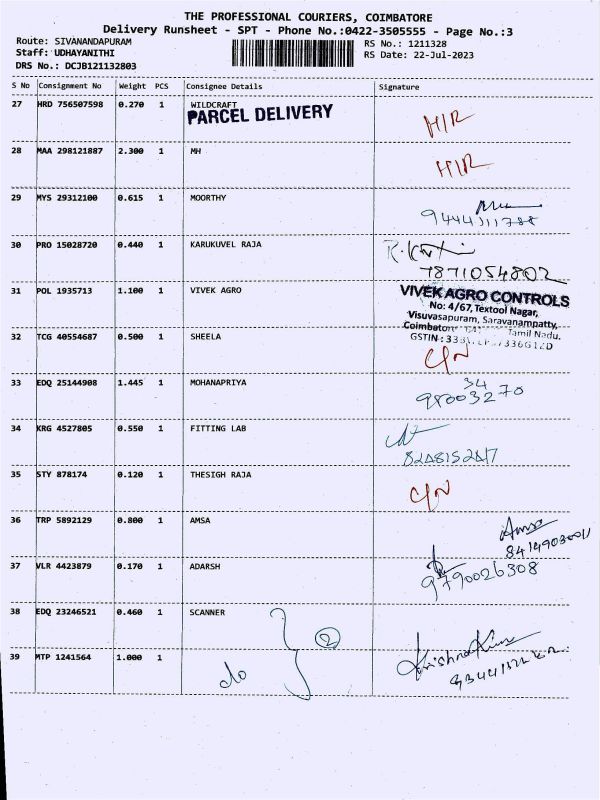 THE PROFESSIONAL COURIERS, COIMBATORE
Delivery Runsheet - SPT - Phone No.:0422-3505555 - Page No.:3
Route: SIVANANDAPURAM
Staff: UDHAYANITHI
DRS No.: DCJB121132803
RS No.: 1211328
RS Date: 22-Jul-2023
S No Consignment No Weight PCS Consignee Details Signature
27 HRD 756507598 0.270 1 WILDCRAFT
PARCEL DELIVERY
H/R
28 MAA 298121887 2.300 1 MH
H/R
29 MYS 29312100 0.615 1 MOORTHY
30 PRO 15028720 0.440 1 KARUKUVEL RAJA
7871054802
31 POL 1935713 1.100 1 VIVEK AGRO
VIVEK AGRO CONTROLS
No: 4/67, Textool Nagar,
Visuvasapuram, Saravanampatty,
Coimbatore Tamil Nadu.
GSTIN :
32 TCG 40554687 0.500 1 SHEELA
C/N
33 EDQ 25144908 1.445 1 MOHANAPRIYA
34 KRG 4527805 0.550 1 FITTING LAB
35 STY 878174 0.120 1 THESIGH RAJA
C/N
36 TRP 5892129 0.800 1 AMSA
Amsa
37 VLR 4423879 0.170 1 ADARSH
9790026308
38 EDQ 23246521 0.460 1 SCANNER
2
39 MTP 1241564 1.000 1
do
Krishna Kumar